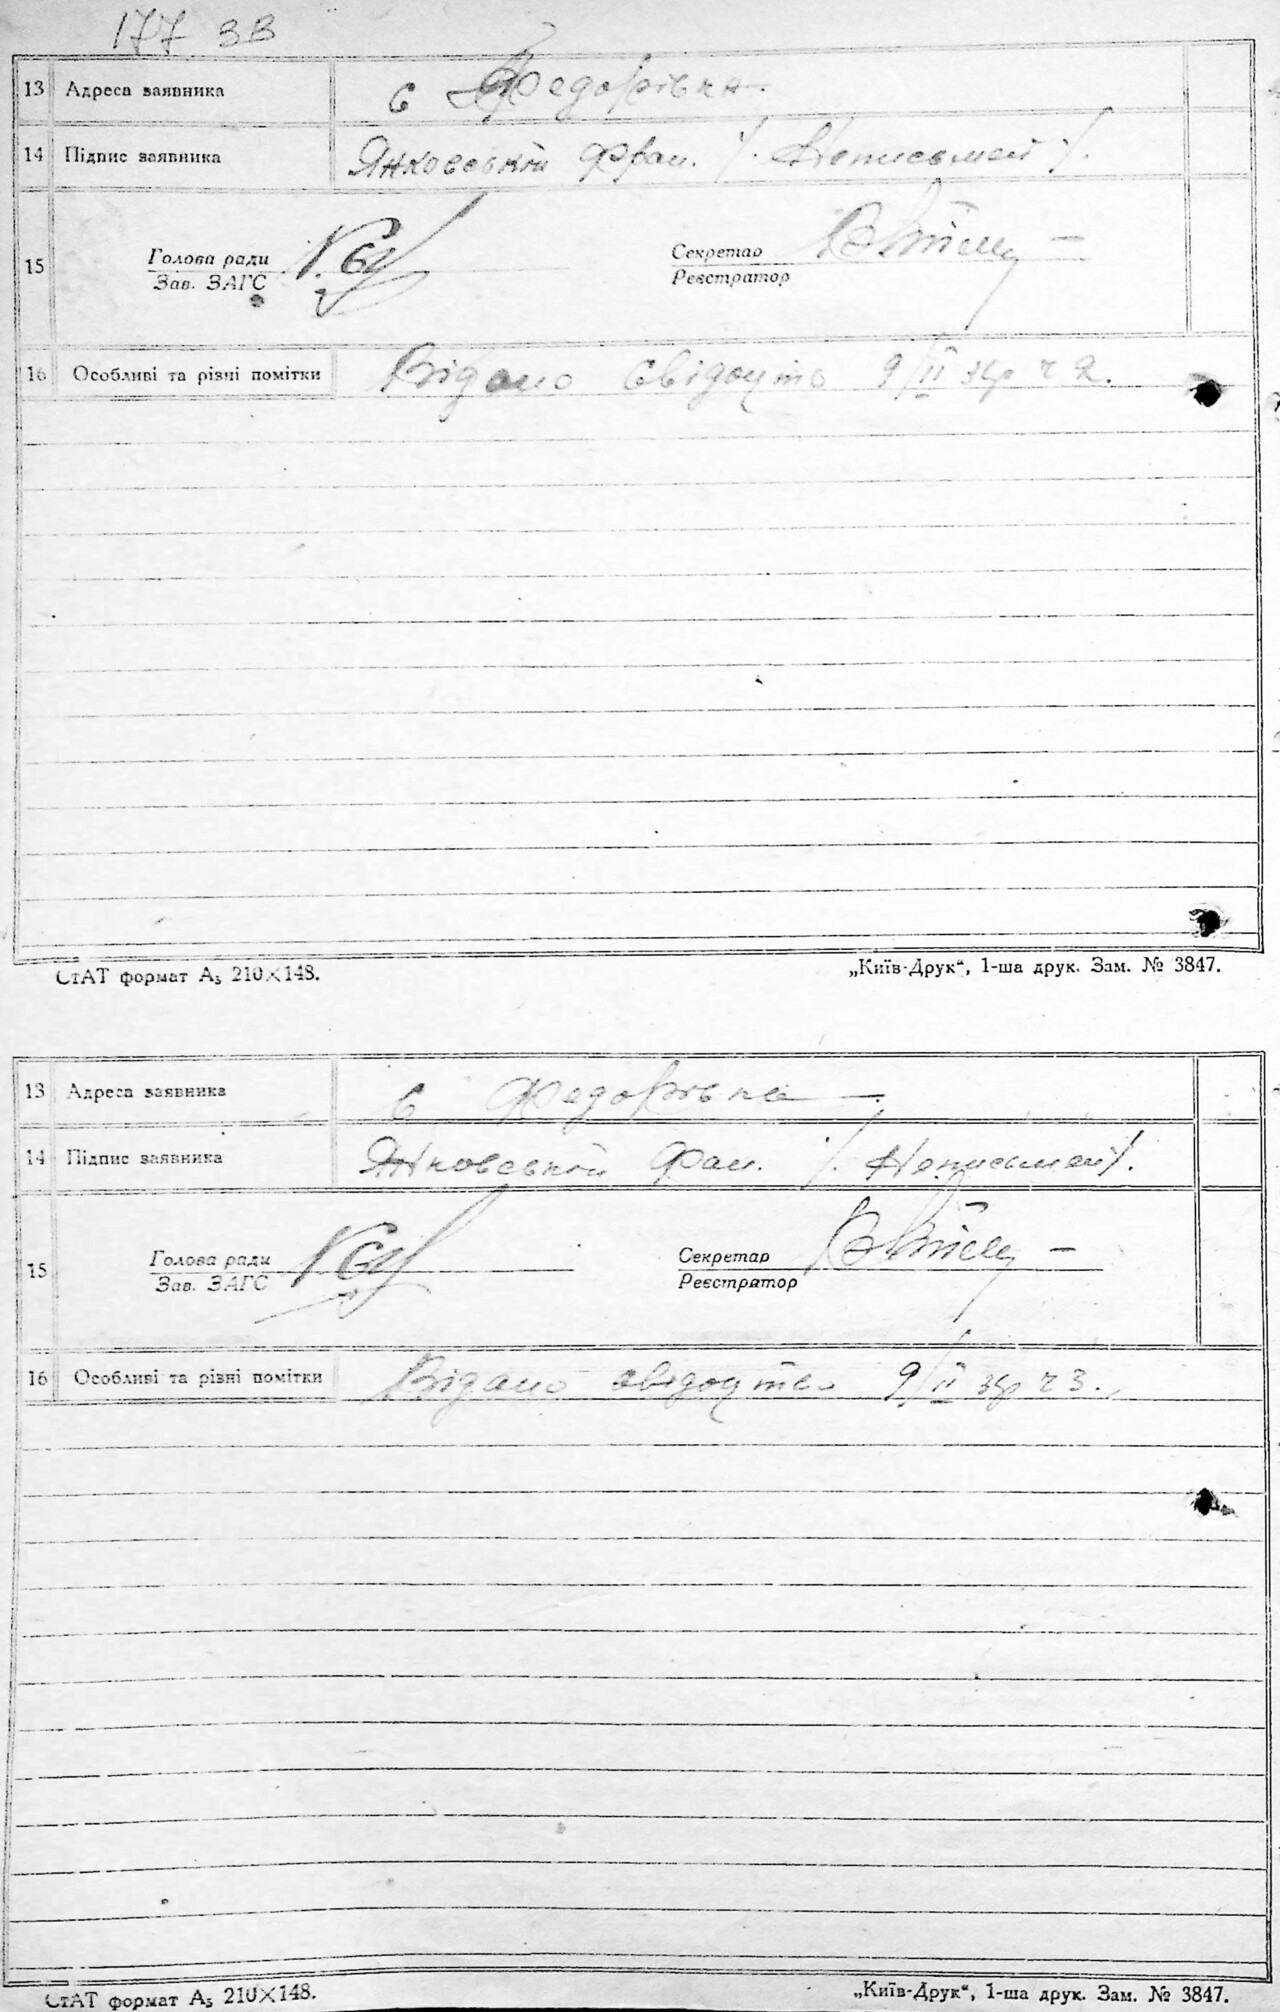 177 зв
13 Адреса заявника с Федорівка.
14 Підпис заявника Янковський Фран. /. Неписьмен /.
15 Голова ради Секретар
Зав. ЗАГС Реєстратор
16 Особливі та різні помітки Відано свідоцтво 9/II 3 2.
СтАТ формат А₅ 210×148. „Київ-Друк“, 1-ша друк. Зам. № 3847.
13 Адреса заявника с Федорівка
14 Підпис заявника Янковський Фран. /. Неписьмен /.
15 Голова ради Секретар
Зав. ЗАГС Реєстратор
16 Особливі та різні помітки Відано свідоцтво 9/II 3.
СтАТ формат А₅ 210×148. „Київ-Друк“, 1-ша друк. Зам. № 3847.